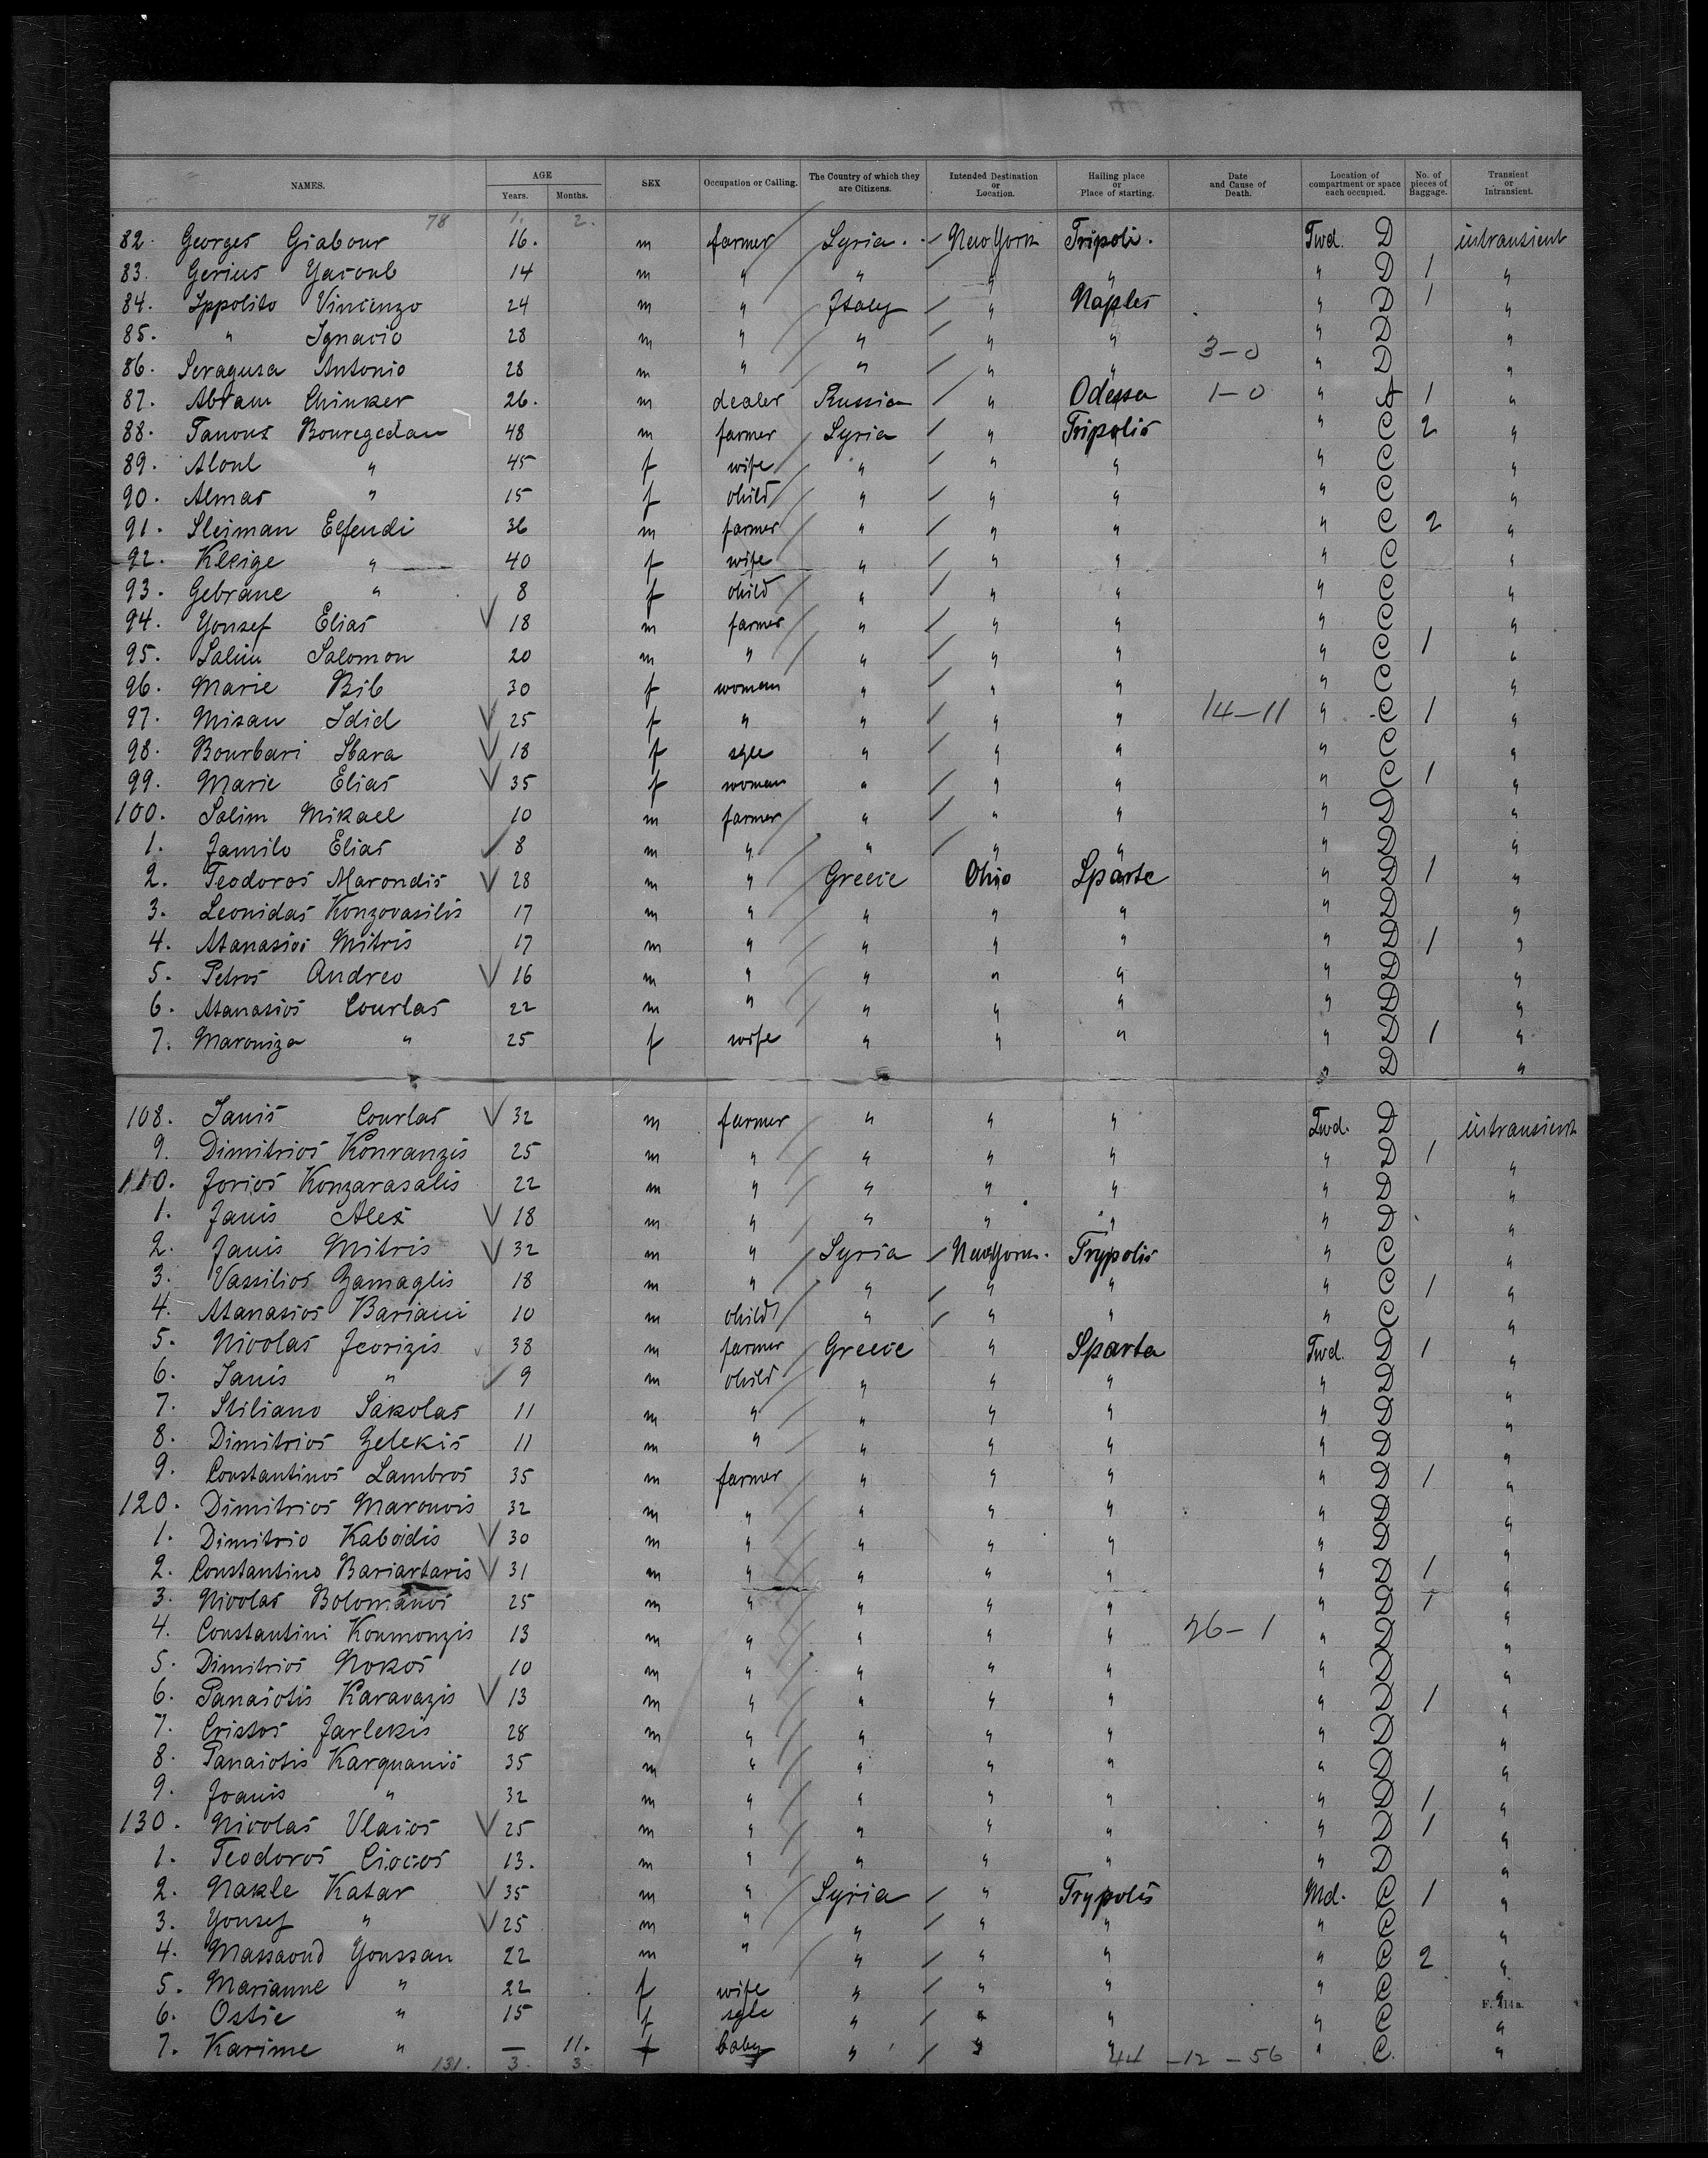 NAMES. AGE Years. Months. SEX Occupation or Calling. The Country of which they are Citizens. Intended Destination or Location. Hailing place or Place of starting. Date and Cause of Death. Location of compartment or space each occupied. No. of pieces of Baggage. Transient or Intransient.
78 1. 2.
82. Georges Giabour 16. m farmer Syria. New York Tripoli. Fwd. D intransient
83. Gerius Yacoub 14 m " " " " " D 1 "
84. Ippolito Vincenzo 24 m " Italy " Naples " D 1 "
85. " Ignacio 28 m " " " " " D "
86. Seragusa Antonio 28 m " " " " 3-0 " D "
87. Abram Chinker 26. m dealer Russia " Odessa 1-0 " A 1 "
88. Tanous Bouregedan 48 m farmer Syria " Tripolis " C 2 "
89. Aloul " 45 f wife " " " " C "
90. Almas " 15 f child " " " " C "
91. Sleiman Effendi 36 m farmer " " " " C 2 "
92. Kleige " 40 f wife " " " " C "
93. Gebrane " 8 f child " " " " C "
94. Yousef Elias 18 m farmer " " " " C "
95. Salim Salomon 20 m " " " " " C 1 "
96. Marie Bib 30 f woman " " " " C "
97. Misan Idid 25 f " " " " 14-11 " C 1 "
98. Bourbari Sbara 18 f sgle " " " " C "
99. Marie Elias 35 f woman " " " " C 1 "
100. Salim Mikael 10 m farmer " " " " D "
1. Jamilo Elias 8 m " " " " " D "
2. Teodoros Marondis 28 m " Greece Ohio Sparte " D 1 "
3. Leonidas Konzovasilis 17 m " " " " " D "
4. Atanasios Mitris 17 m " " " " " D 1 "
5. Petros Andreo 16 m " " " " " D "
6. Atanasios Courlas 22 m " " " " " D "
7. Maroniza " 25 f wife " " " " D 1 "
" D "
108. Ianis Courlas 32 m farmer " " " Fwd. D intransient
9. Dimitrios Konranzis 25 m " " " " " D 1 "
110. Jorios Konzarasalis 22 m " " " " " D "
1. Janis Alex 18 m " " " " " D "
2. Janis Mitris 32 m " Syria New York. Trypolis " C "
3. Vassilios Gamaglis 18 m " " " " " C 1 "
4. Atanasios Bariani 10 m child " " " " C "
5. Nicolas Jeorizis 38 m farmer Greece " Sparta Fwd. D 1 "
6. Ianis " 9 m child " " " " D "
7. Stiliano Sakolas 11 m " " " " " D "
8. Dimitrios Gelekis 11 m " " " " " D "
9. Constantinos Lambros 35 m farmer " " " " D 1 "
120. Dimitrios Maronois 32 m " " " " " D "
1. Dimitrio Kaboidis 30 m " " " " " D "
2. Constantino Bariartaris 31 m " " " " " D 1 "
3. Nicolas Bolomanos 25 m " " " " " D 1 "
4. Constantini Koumonzis 13 m " " " " 26-1 " D "
5. Dimitrios Nokos 10 m " " " " " D "
6. Panaiotis Karavazis 13 m " " " " " D 1 "
7. Cristos Jarlekis 28 m " " " " " D "
8. Panaiotis Karquanis 35 m " " " " " D "
9. Joanis " 32 m " " " " " D 1 "
130. Nicolas Vlacos 25 m " " " " " D 1 "
1. Teodoros Ciocos 13. m " " " " " D "
2. Nakle Katar 35 m " Syria " Trypolis Md. C 1 "
3. Yousef " 25 m " " " " " C "
4. Massaoud Youssan 22 m " " " " " C 2 "
5. Marianne " 22 f wife " " " " C "
F. 414a.
6. Ostie " 15 f sgle " " " " C "
7. Karime " — 11. f baby " " " " C. "
131. 3. 3. 44 -12 -56